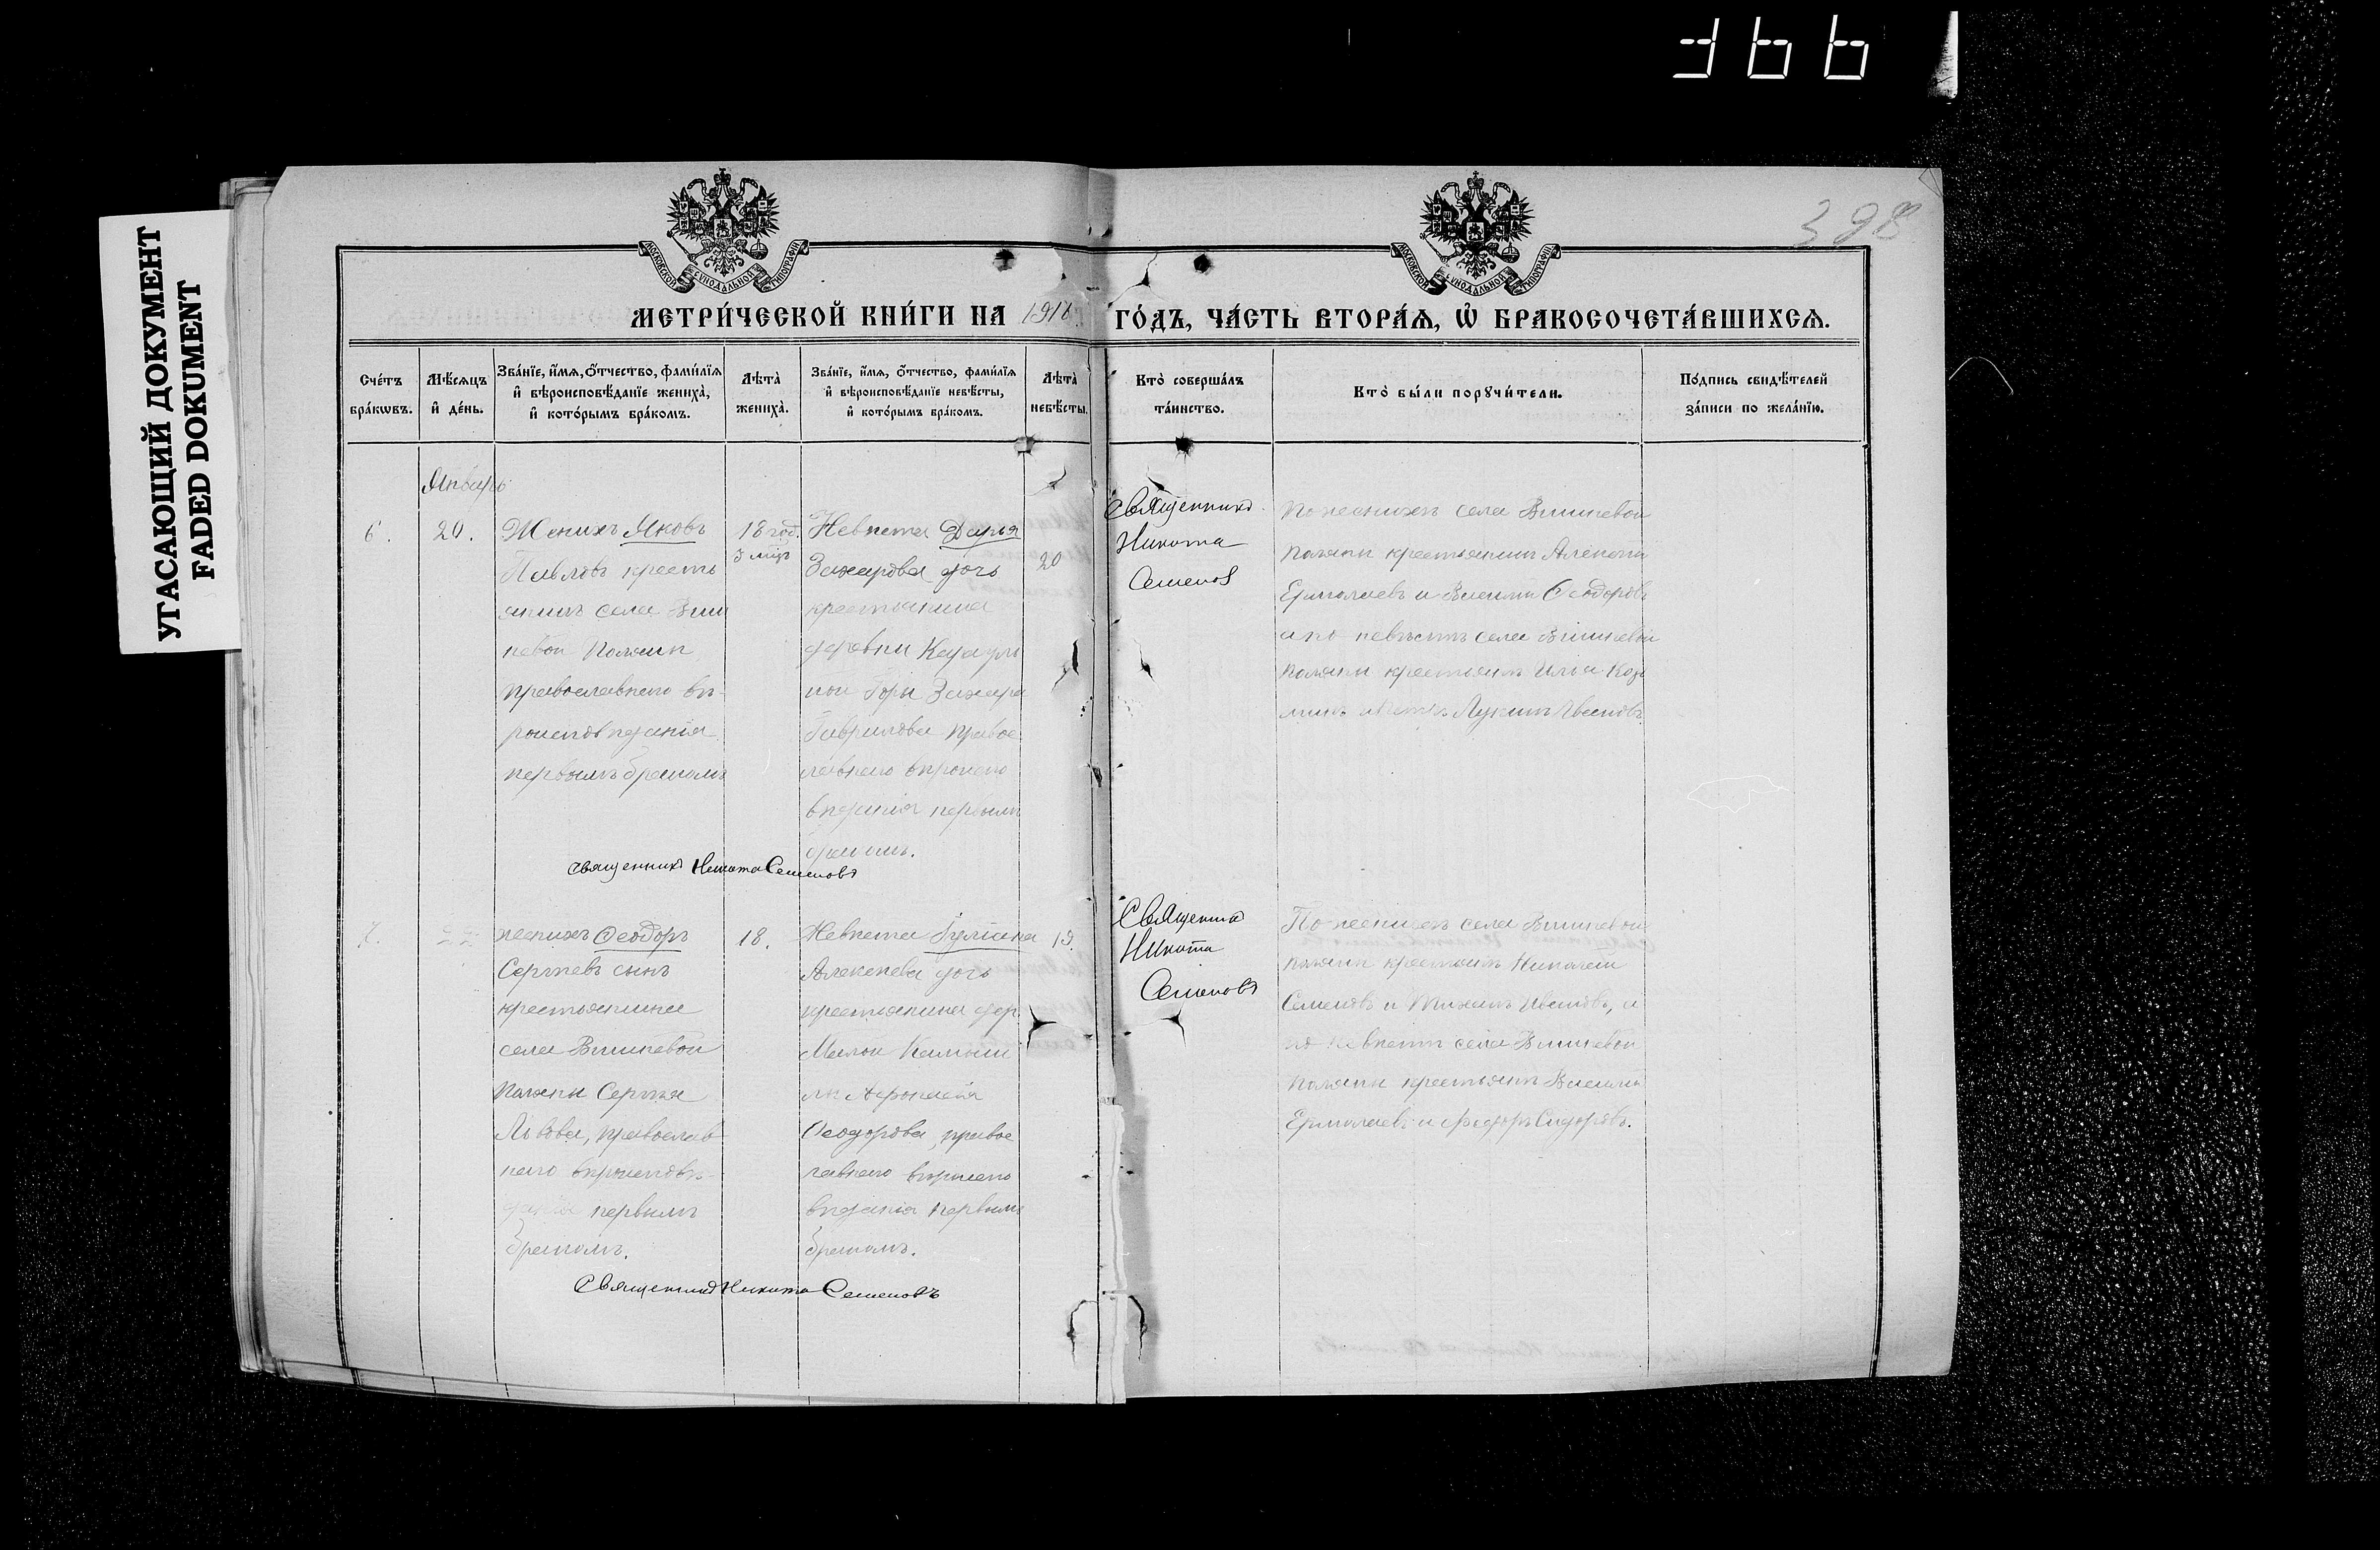 366
УГАСАЮЩИЙ ДОКУМЕНТ
FADED DOKUMENT
398
МОСКОВСКОЙ СѴНОДАЛЬНОЙ ТИПОГРАФІИ
МОСКОВСКОЙ СѴНОДАЛЬНОЙ ТИПОГРАФІИ
МЕТРИ́ЧЕСКОЙ КНИ́ГИ НА 1918 ГО́ДЪ, ЧА́СТЬ ВТОРА́Ѧ, Ѽ БРАКОСОЧЕТА́ВШИХСѦ.
Сче́тъ
бра́кѡвъ.
Мѣ́сѧцъ
и҆ де́нь.
Зва́нїе, и҆́мѧ, ѻ҆́тчество, фами́лїѧ
и҆ вѣроисповѣ́данїе жениха̀,
и҆ кото́рымъ бра́комъ.
Лѣта̀
жениха̀.
Зва́нїе, и҆́мѧ, ѻ҆́тчество, фами́лїѧ
и҆ вѣроисповѣ́данїе невѣ́сты,
и҆ кото́рымъ бра́комъ.
Лѣта̀
невѣ́сты.
Кто̀ соверша́лъ
та́инство.
Кто̀ бы́ли порꙋчи́тели.
По́дпись свидѣ́телей
за́писи по жела́нїю.
Январь
6.
20.
Женихъ Яковъ
Павловъ кресть
янинъ села Виш
невой Поляны
православнаго вѣ-
роисповѣданія
первымъ бракомъ
18 год.
3 мѣц
Невѣста Дарья
Захарова дочь
крестьянина
деревни
ной Горы Захара
Гаврилова право
славнаго вѣроиспо
вѣданія первымъ
бракомъ.
20
Священникъ
Никита
Семенов
По женихѣ села Вишневой
Поляны крестьянинъ Алексѣй
Ермолаевъ и Василій Ѳеодоровъ
а по невѣстѣ села Вишневой
Поляны крестьянинъ Илья Козь
минъ Лукинъ Ивановъ.
священникъ Никита Семеновъ
7.
22
женихъ Ѳеодоръ
Сергѣевъ сынъ
крестьянина
села Вишневой
Поляны Сергѣя
Львова, православ
наго вѣроисповѣ-
данія первымъ
бракомъ.
18.
Невѣста Іуліана
Алексѣева дочь
крестьянина дер.
Малой Камыш
Ѳеодорова, право
славнаго вѣроиспо
вѣданія первымъ
бракомъ.
19.
Священник
Никита
Семеновъ
По женихѣ села Вишневой
Поляны крестьянинъ Николай
Семеновъ и Тихонъ Ивановъ, а
по невѣстѣ села Вишневой
Поляны крестьянинъ Василій
Ермолаевъ и Федоръ Сидоровъ.
Священникъ Никита Семеновъ